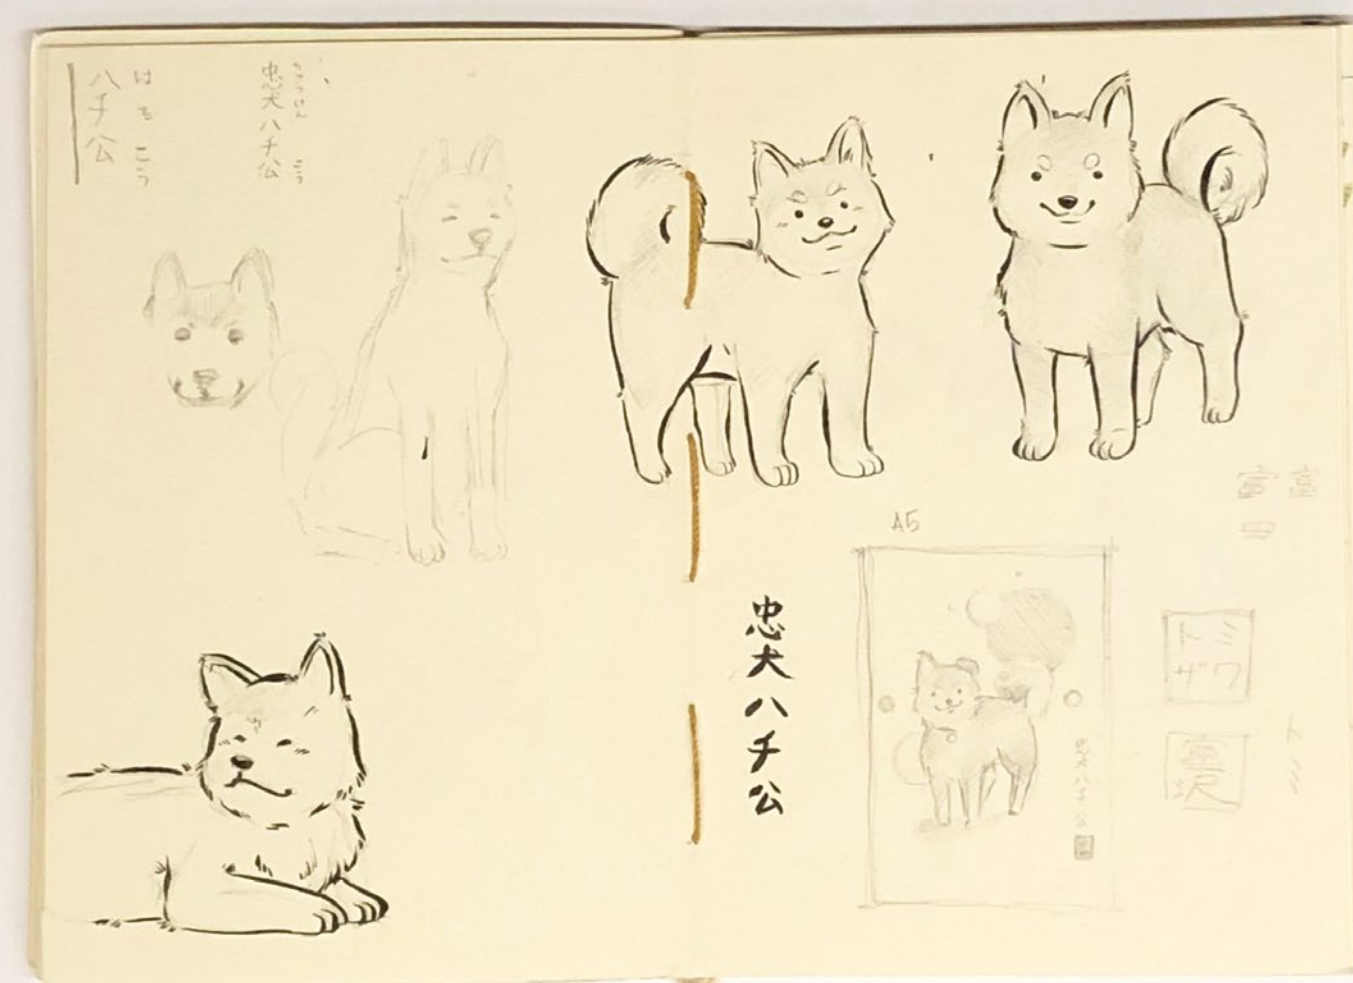 はちこう
ハチ公
ちゅうけん こう
忠犬ハチ公
A5
忠犬ハチ公
忠犬ハチ公
富
富
田
トミ
ザワ
富沢
トミ